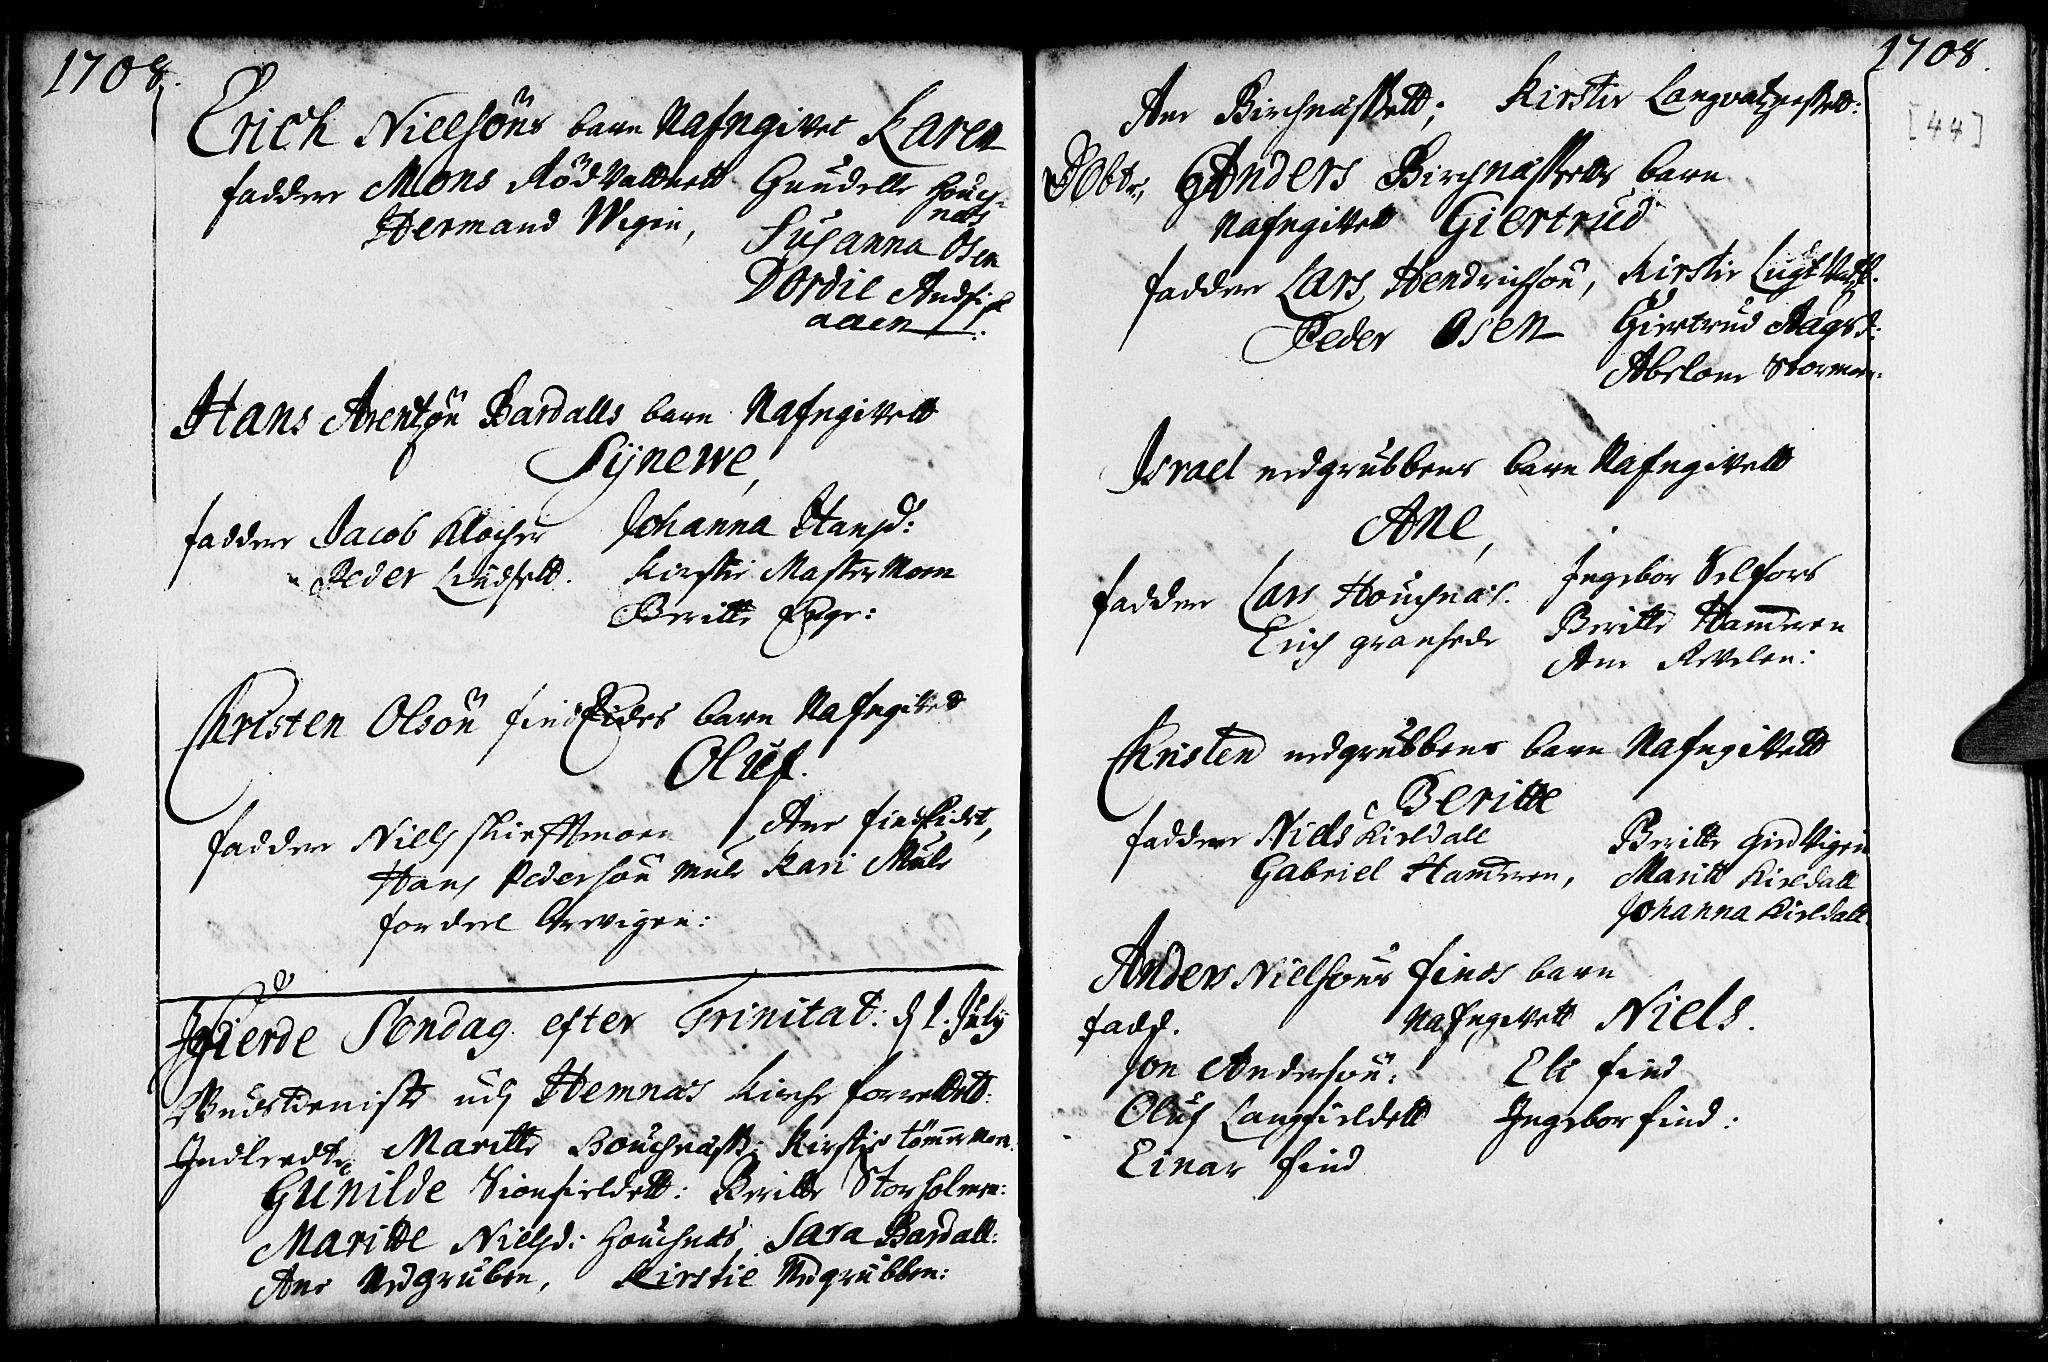 1708.
Erich Nielsöns barn Nafngivet Karen
faddere Mons Rödvattnett Gundelle Houch-
næs
Hermand Wigin, Susanna Osen
Dordie Andfisk
aaen
Hans Arentzön Bardalls barn Nafngivett
Sijnewe,
faddere Jacob Klocher Johanna Hansd:
Peder Lundfeld. Kirstie Mastermoen
Beritte
Christen Olsön findEides barn Nafngivet
Oluf.
faddere Niels Ane findEidet,
Hans Pedersön Mule Kari Mule
Arvigen:
Fierde Sondag efter Trinitat: d 1. July
Gudstieniste udj Hemnæs Kirche forrettet:
Indleedte Maritte Houchnæss: Kirstie tömmermoen.
Gunilde Sionfieldett: Beritte Storholmen:
Maritte Nielsd: Houchnæs, Sara Bardall:
Ane Nedgruben, Kirstie Nedgrubben:
1708.
[44]
Ane Birchnæssett; Kirstie Langvatznessett:
Döbte, Anders Birchnæssetts barn
Nafngivett Giertrud
faddere Lars Hendrichsön, Kirstie
Peder Osen Giertrud Aagesd:
Abelone Stormoen:
Israel nedgrubbens barn Nafngivett
Ane,
faddere Lars Houchnæs. Ingebor Selfors
Erich granhede Beritte Hammeren
Ane Revelen:
Christen nedgrubbens barn Nafngivett
Beritte
faddere Niels Kieldall Beritte
Gabriel Hammeren, Maritt Kieldall
Johanna Kieldall.
Anders Nielsöns finds barn
fadd. Nafngivett Niels.
Jon Andersön: Eli find
Oluf Langfieldett Ingebor find:
Einar find